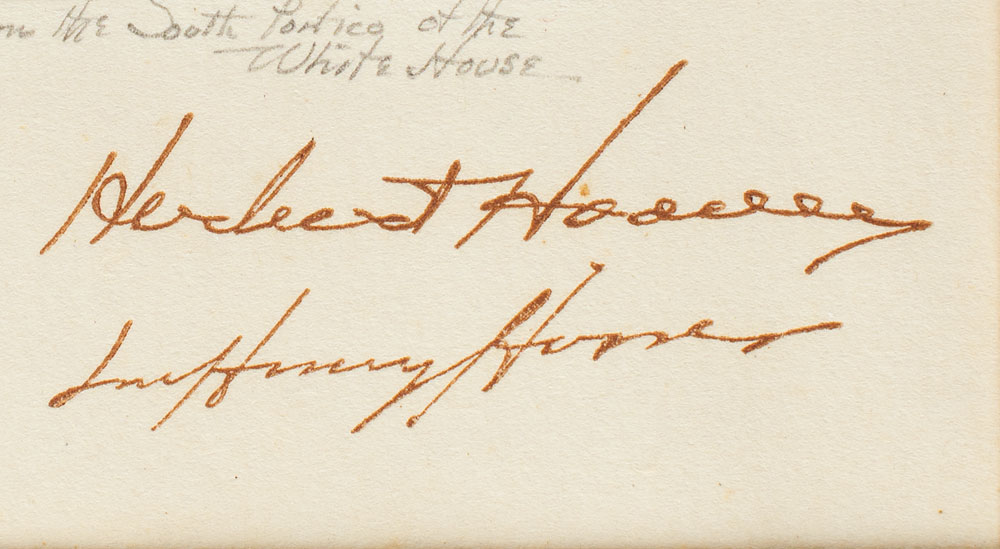 on the South Portico of the
White House
Herbert Hoover
Lou Henry Hoover